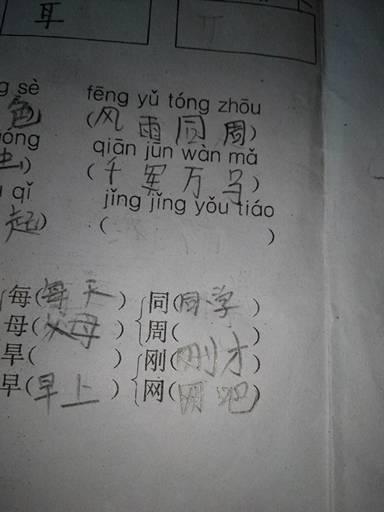 耳
g sè fēng yǔ tóng zhōu
色) (风雨同周)
óng qiān jūn wàn mǎ
虫) (千军万马)
qǐ jǐng jǐng yǒu tiáo
起) ( )
每(每天) 同(同学)
母(父母) 周( )
早( ) 刚(刚才)
早(早上) 网(网吧)